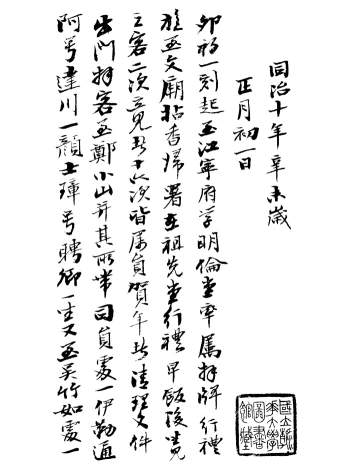 同治十年辛未歲
正月初一日
卯初一刻起至江寧府學明倫堂率屬拜牌行禮
旋至文廟拈香歸署至祖先堂行禮早飯後坐見
之客二次立見者十六次皆屬員賀年者清理文件
出門拜客至鄭小山并其所帶司員處一伊勒通
阿号達川一顏士璋号聘卿一坐又至吳竹如處一